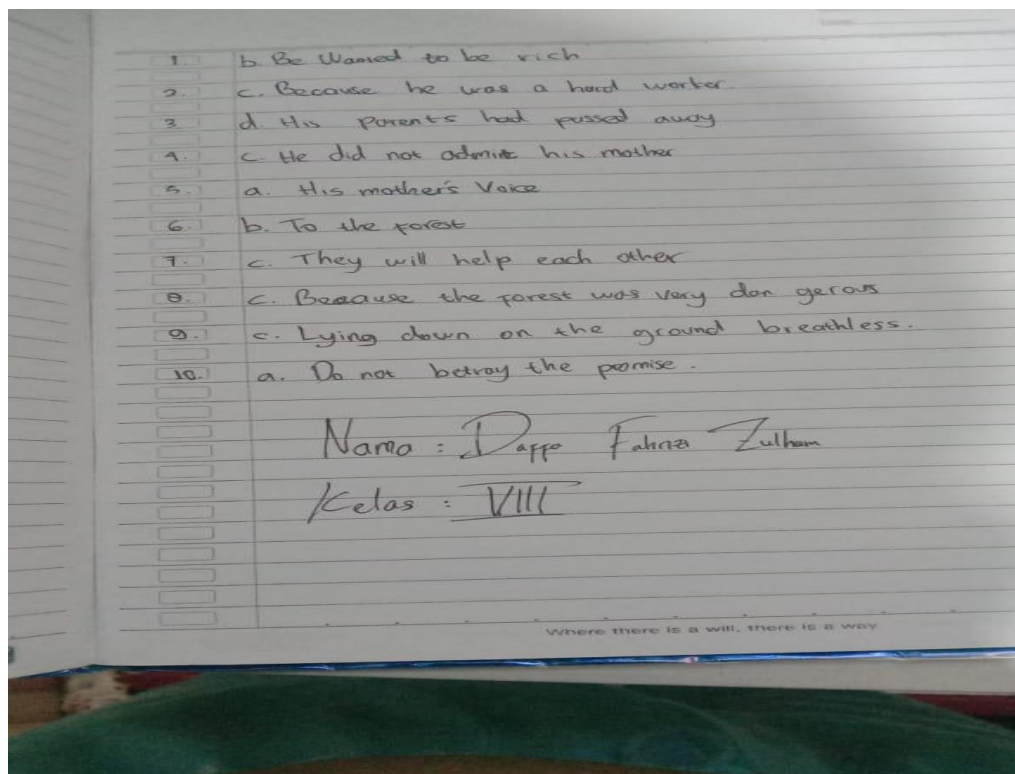 1. b. Be Wanted to be rich
2. c. Because he was a hard worker.
3. d. His parents had passed away
4. c. He did not admit his mother
5. a. His mother's Voice
6. b. To the forest
7. c. They will help each other
8. c. Beacause the forest was very dan gerous
9. c. Lying down on the ground breathless.
10. a. Do not betray the promise.
Nama : Daffa Zulham
Kelas : VIII
Where there is a will, there is a way